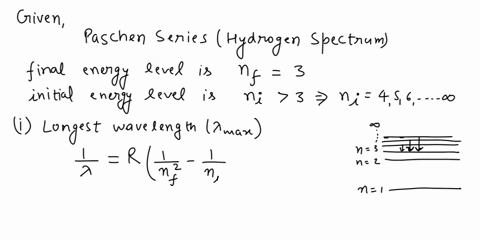 Given,
Paschen Series (Hydrogen Spectrum)
final energy level is n_f = 3
initial energy level is n_i > 3 ⇒ n_i = 4,5,6,.....∞
(i) Longest wavelength (λ_max)
1/λ = R (1/n_f² - 1/n,
∞
n=3
n=2
n=1